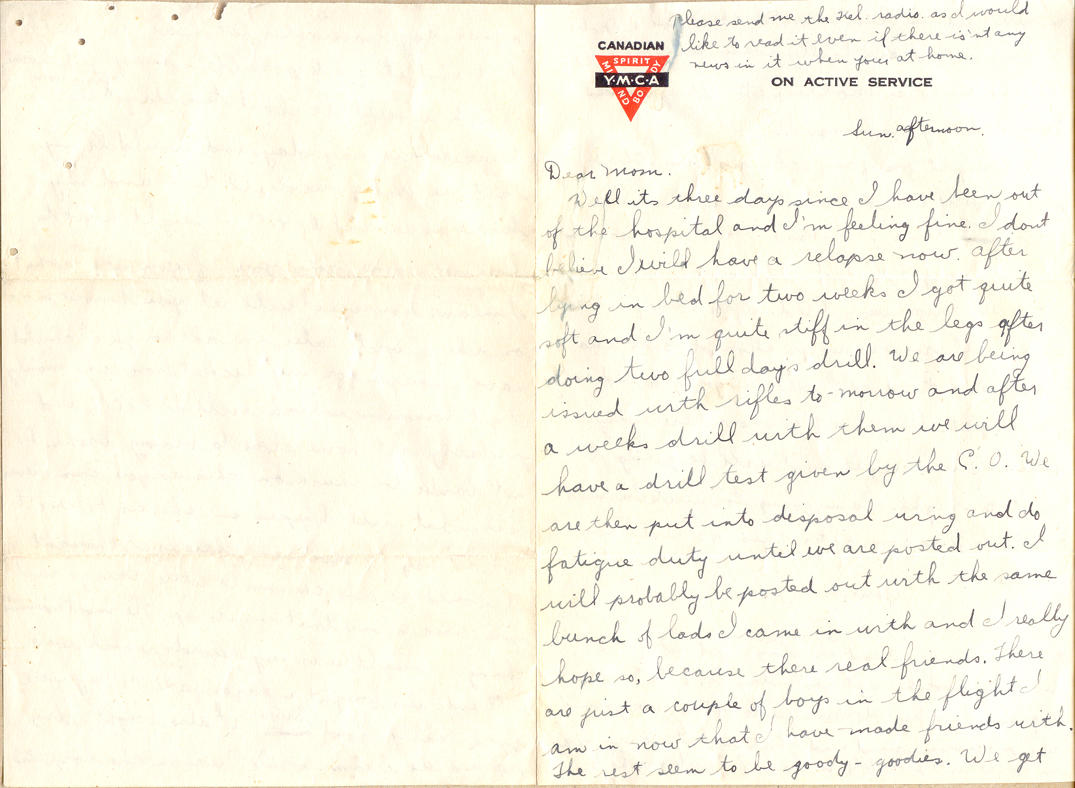 Please send me the Kel. radio. as I would
like to read it even if there is'nt any
news in it when your at home.
CANADIAN
SPIRIT
MIND
BODY
Y·M·C·A
ON ACTIVE SERVICE
Sun. afternoon.
Dear Mom.
Well its three days since I have been out
of the hospital and I'm feeling fine. I dont
believe I will have a relapse now. after
lying in bed for two weeks I got quite
soft and I'm quite stiff in the legs after
doing two full days drill. We are being
issued with rifles to-morrow and after
a weeks drill with them we will
have a drill test given by the C. O. We
are then put into disposal wing and do
fatigue duty until we are posted out. I
will probably be posted out with the same
bunch of lads I came in with and I really
hope so, because there real friends. There
are just a couple of boys in the flight I
am in now that I have made friends with.
The rest seem to be goody-goodies. We get